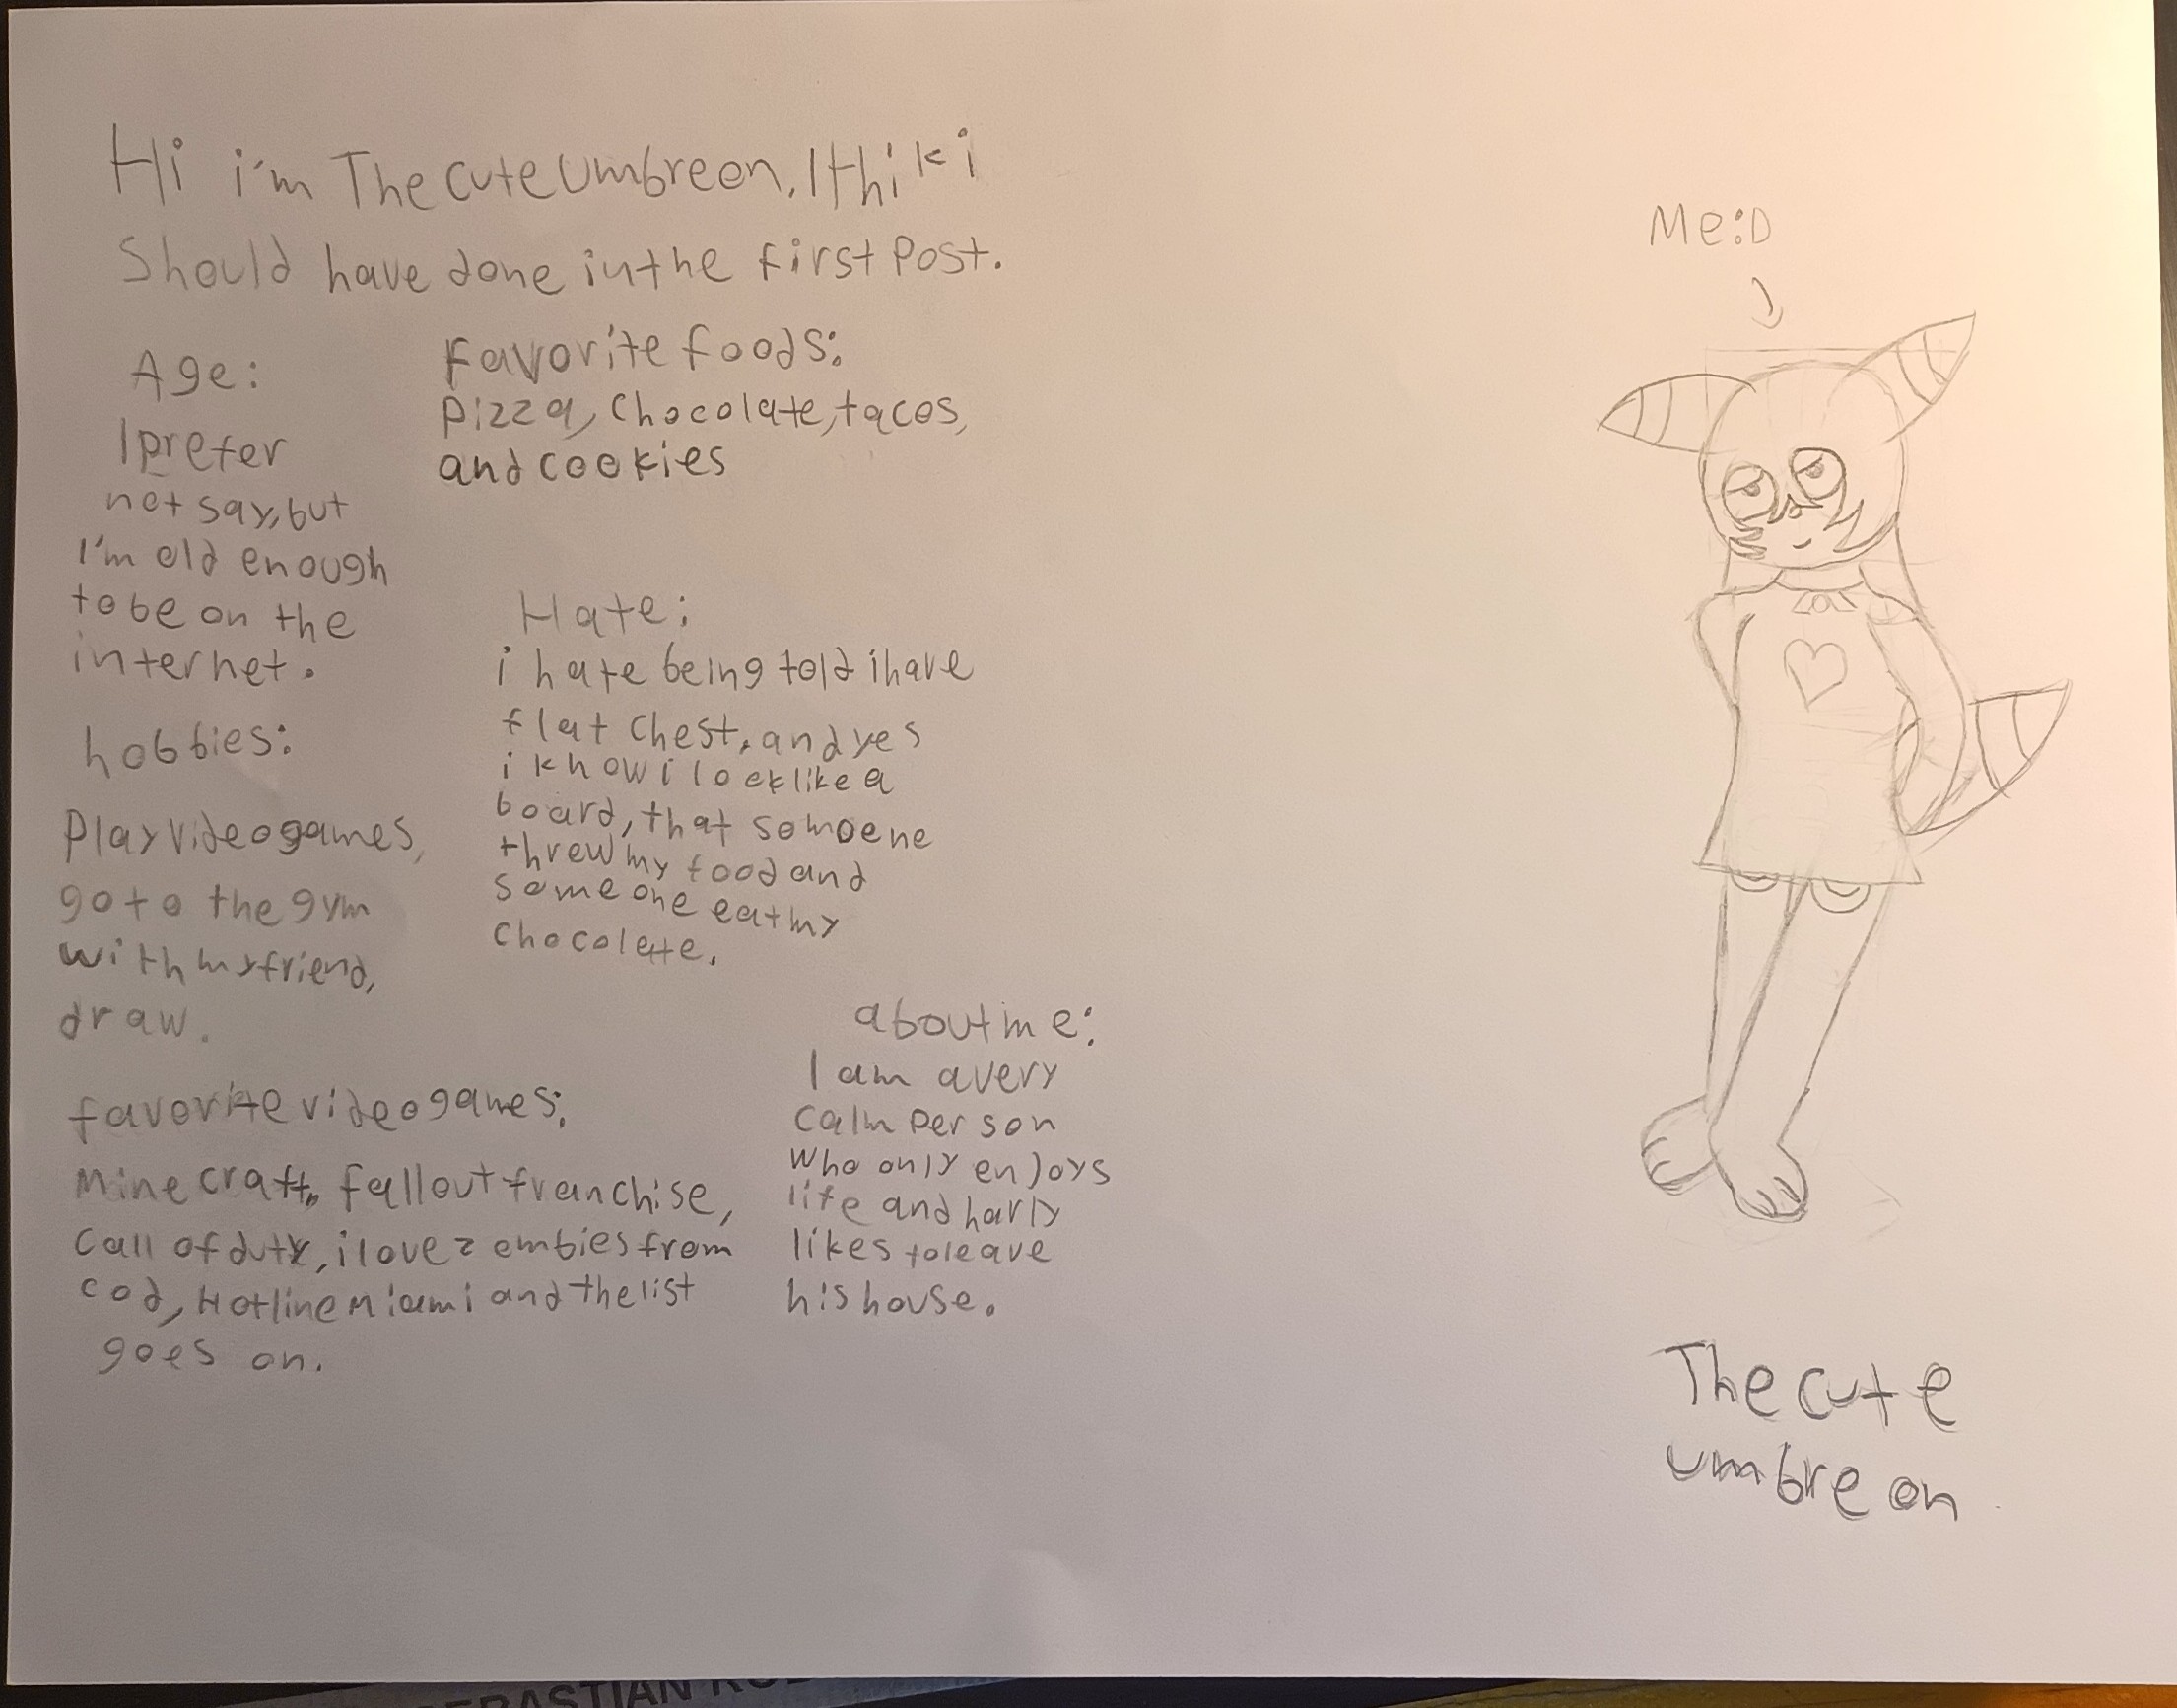 Hi i'm The cute umbreon, I thik i
Should have done in the first Post.
Age:
I prefer
not say, but
I'm old enough
to be on the
internet.
hobbies:
Play videogames,
go to the gym
with my friend,
draw.
favorite videogames:
Minecraft, fallout franchise,
Call of duty, i love zombies from
cod, Hotline Miami and the list
goes on.
Favorite foods:
Pizza, Chocolate, tacos,
and cookies
Hate:
i hate being told i have
flat chest, and yes
i know i look like a
board, that somoene
threw my food and
someone eat my
chocolate.
about me:
I am a very
calm person
who only enjoys
life and harly
likes to leave
his house.
Me:D
The cute
umbreon
SEBASTIAN